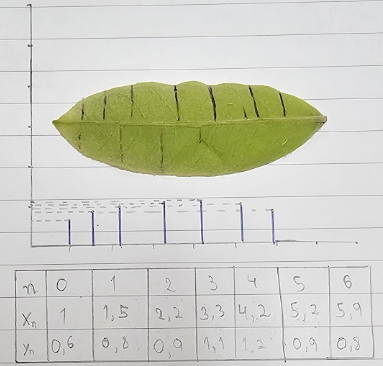 n 0 1 2 3 4 5 6
Xn 1 1,5 2,2 3,3 4,2 5,2 5,9
Yn 0,6 0,8 0,9 1,1 1,2 0,9 0,8